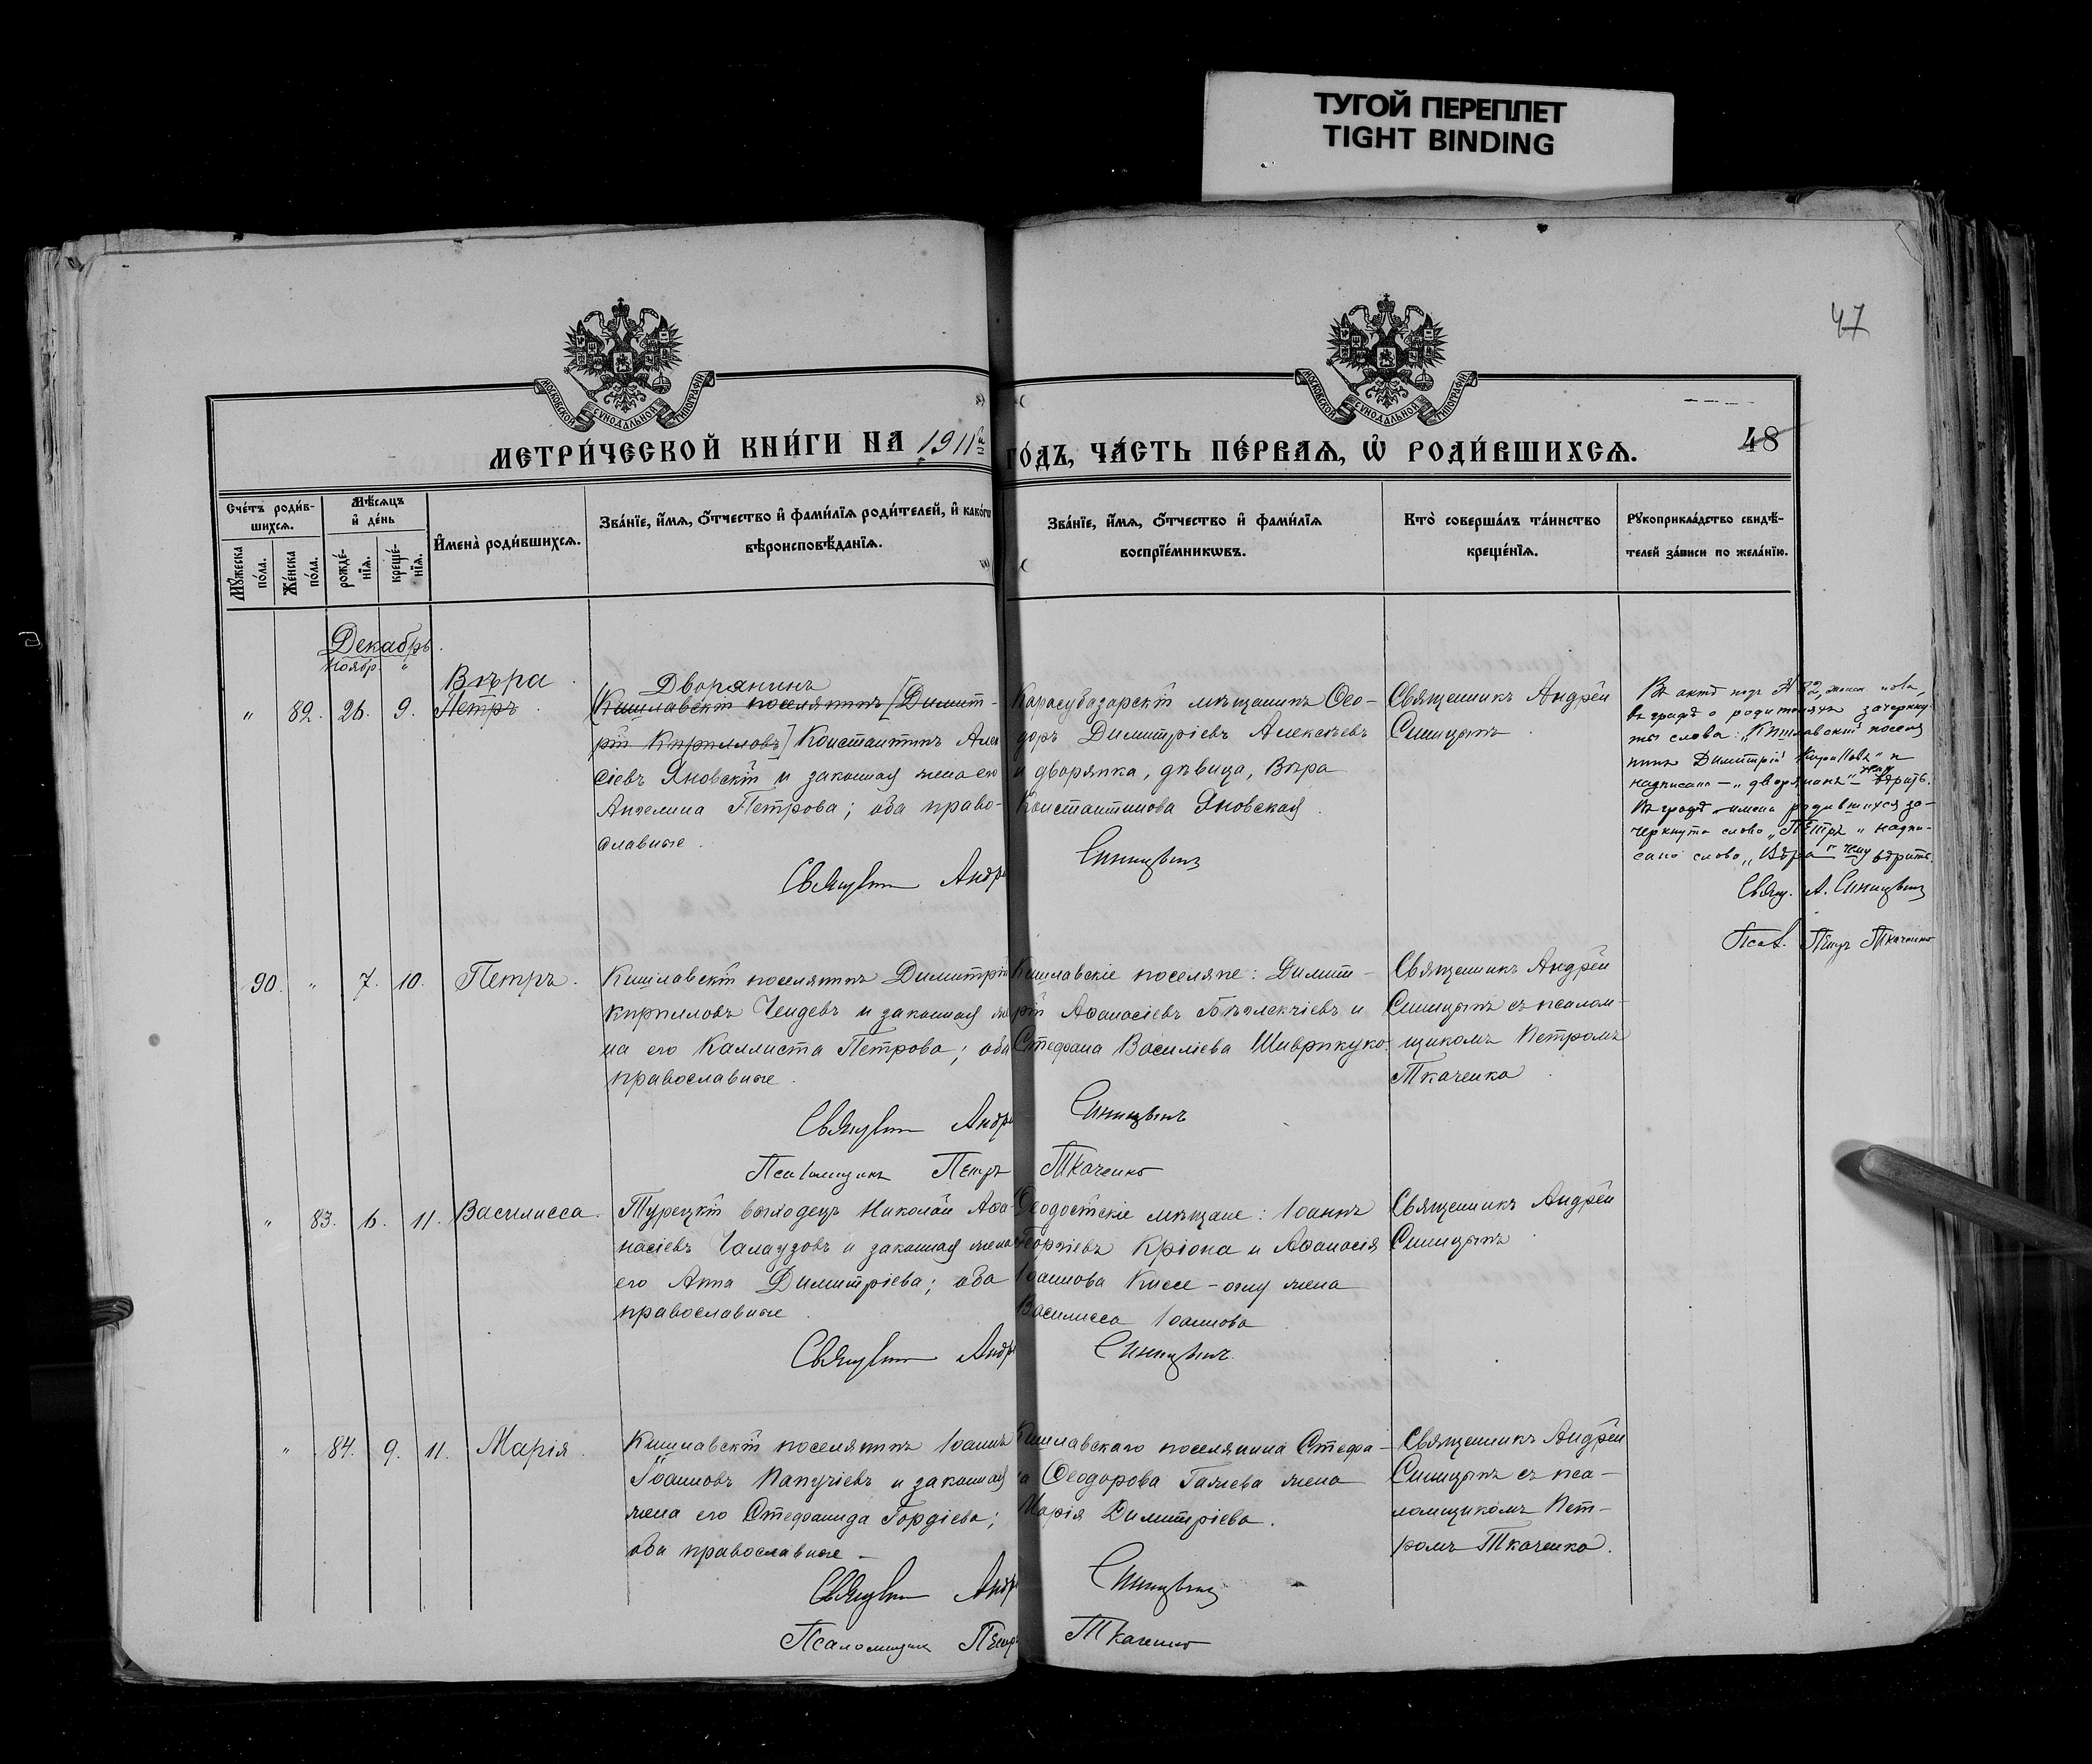 ТУГОЙ ПЕРЕПЛЕТ
TIGHT BINDING
47
МОСКОВСКОЙ СѴНОДАЛЬНОЙ ТИПОГРАФІИ
МОСКОВСКОЙ СѴНОДАЛЬНОЙ ТИПОГРАФІИ
МЕТРИ́ЧЕСКОЙ КНИ́ГИ НА 1911й ГО́ДЪ, ЧА́СТЬ ПЕ́РВАѦ, Ѽ РОДИ́ВШИХСѦ.
48
Сче́тъ роди́в-
шихсѧ.
Мꙋ́жеска по́ла.
Же́нска по́ла.
Мѣ́сѧцъ
и҆ де́нь
рожде́-нїѧ.
креще́-нїѧ.
И҆мена̀ роди́вшихсѧ.
Зва́нїе, и҆́мѧ, ѻ҆́тчество и҆ фами́лїѧ роди́телей, и҆ како́гѡ
вѣроисповѣ́данїѧ.
Зва́нїе, и҆́мѧ, ѻ҆́тчество и҆ фами́лїѧ
воспрїе́мникѡвъ.
Кто̀ соверша́лъ та́инство
креще́нїѧ.
Рꙋкоприкла́дство свидѣ́-
телей за́писи по жела́нїю.
Декабрь.
Ноябр. "
" 82. 26. 9.
Вѣра
Петръ
Дворянинъ
[Кишлавскій поселянинъ [Димит-
рій Кирилловъ] Константинъ Алек
сіевъ Яновскій и законная жена его
Ангелина Петрова; оба право-
славные.
Священник Андр
Карасубазарскій мѣщанинъ Ѳео-
доръ Димитріевъ Алексѣевъ
и дворянка, дѣвица, Вѣра
Константинова Яновская.
Синицынъ
Священникъ Андрей
Синицынъ.
Въ актѣ подъ № 82, женск. пола,
въ графѣ о родителяхъ зачеркну-
ты слова: „Кишлавскій поселя
нинъ Димитрій Кирилловъ" и
надписано — „дворянинъ" чему вѣрить.
Въ графѣ имена родившихся за-
черкнуто слово „Петръ" надпи-
сано слово „Вѣра" чему вѣрить.
Свящ. А. Синицынъ
Псал. Петръ Ткаченко
90. " 7. 10. Петръ.
Кишлавскій поселянинъ Димитрій
Кирилловъ Чендевъ и законная же
на его Каллиста Петрова; оба
православные.
Священник Андр
Псаломщикъ Петръ
Кишлавскіе поселяне: Димит-
рій Аѳанасіевъ и
Стефана Василіева
Синицынъ
Ткаченко
Священникъ Андрей
Синицынъ съ псалом-
щикомъ Петромъ
Ткаченко.
" 83. 6. 11. Василисса.
Турецкій выходецъ Николай Аѳа-
насіевъ Чалаузовъ и законная жена
его Анна Димитріева; оба
православные.
Священник Андр
Ѳеодосійскіе мѣщане: Іоаннъ
Георгіевъ Кріона и Аѳанасія
Іоаннова Киссе-оглу жена
Василисса Іоаннова.
Синицынъ.
Священникъ Андрей
Синицынъ.
" 84. 9. 11. Марія.
Кишлавскій поселянинъ Іоаннъ
Іоанновъ Папучіевъ и законная
жена его Стефанида Гордіева;
оба православные —
Священник Андр
Псаломщик Петръ
Кишлавскаго поселянина Стефа-
на Ѳеодорова Галчева жена
Марія Димитріева.
Синицынъ
Ткаченко
Священникъ Андрей
Синицынъ съ пса-
ломщикомъ Пет-
ромъ Ткаченко.